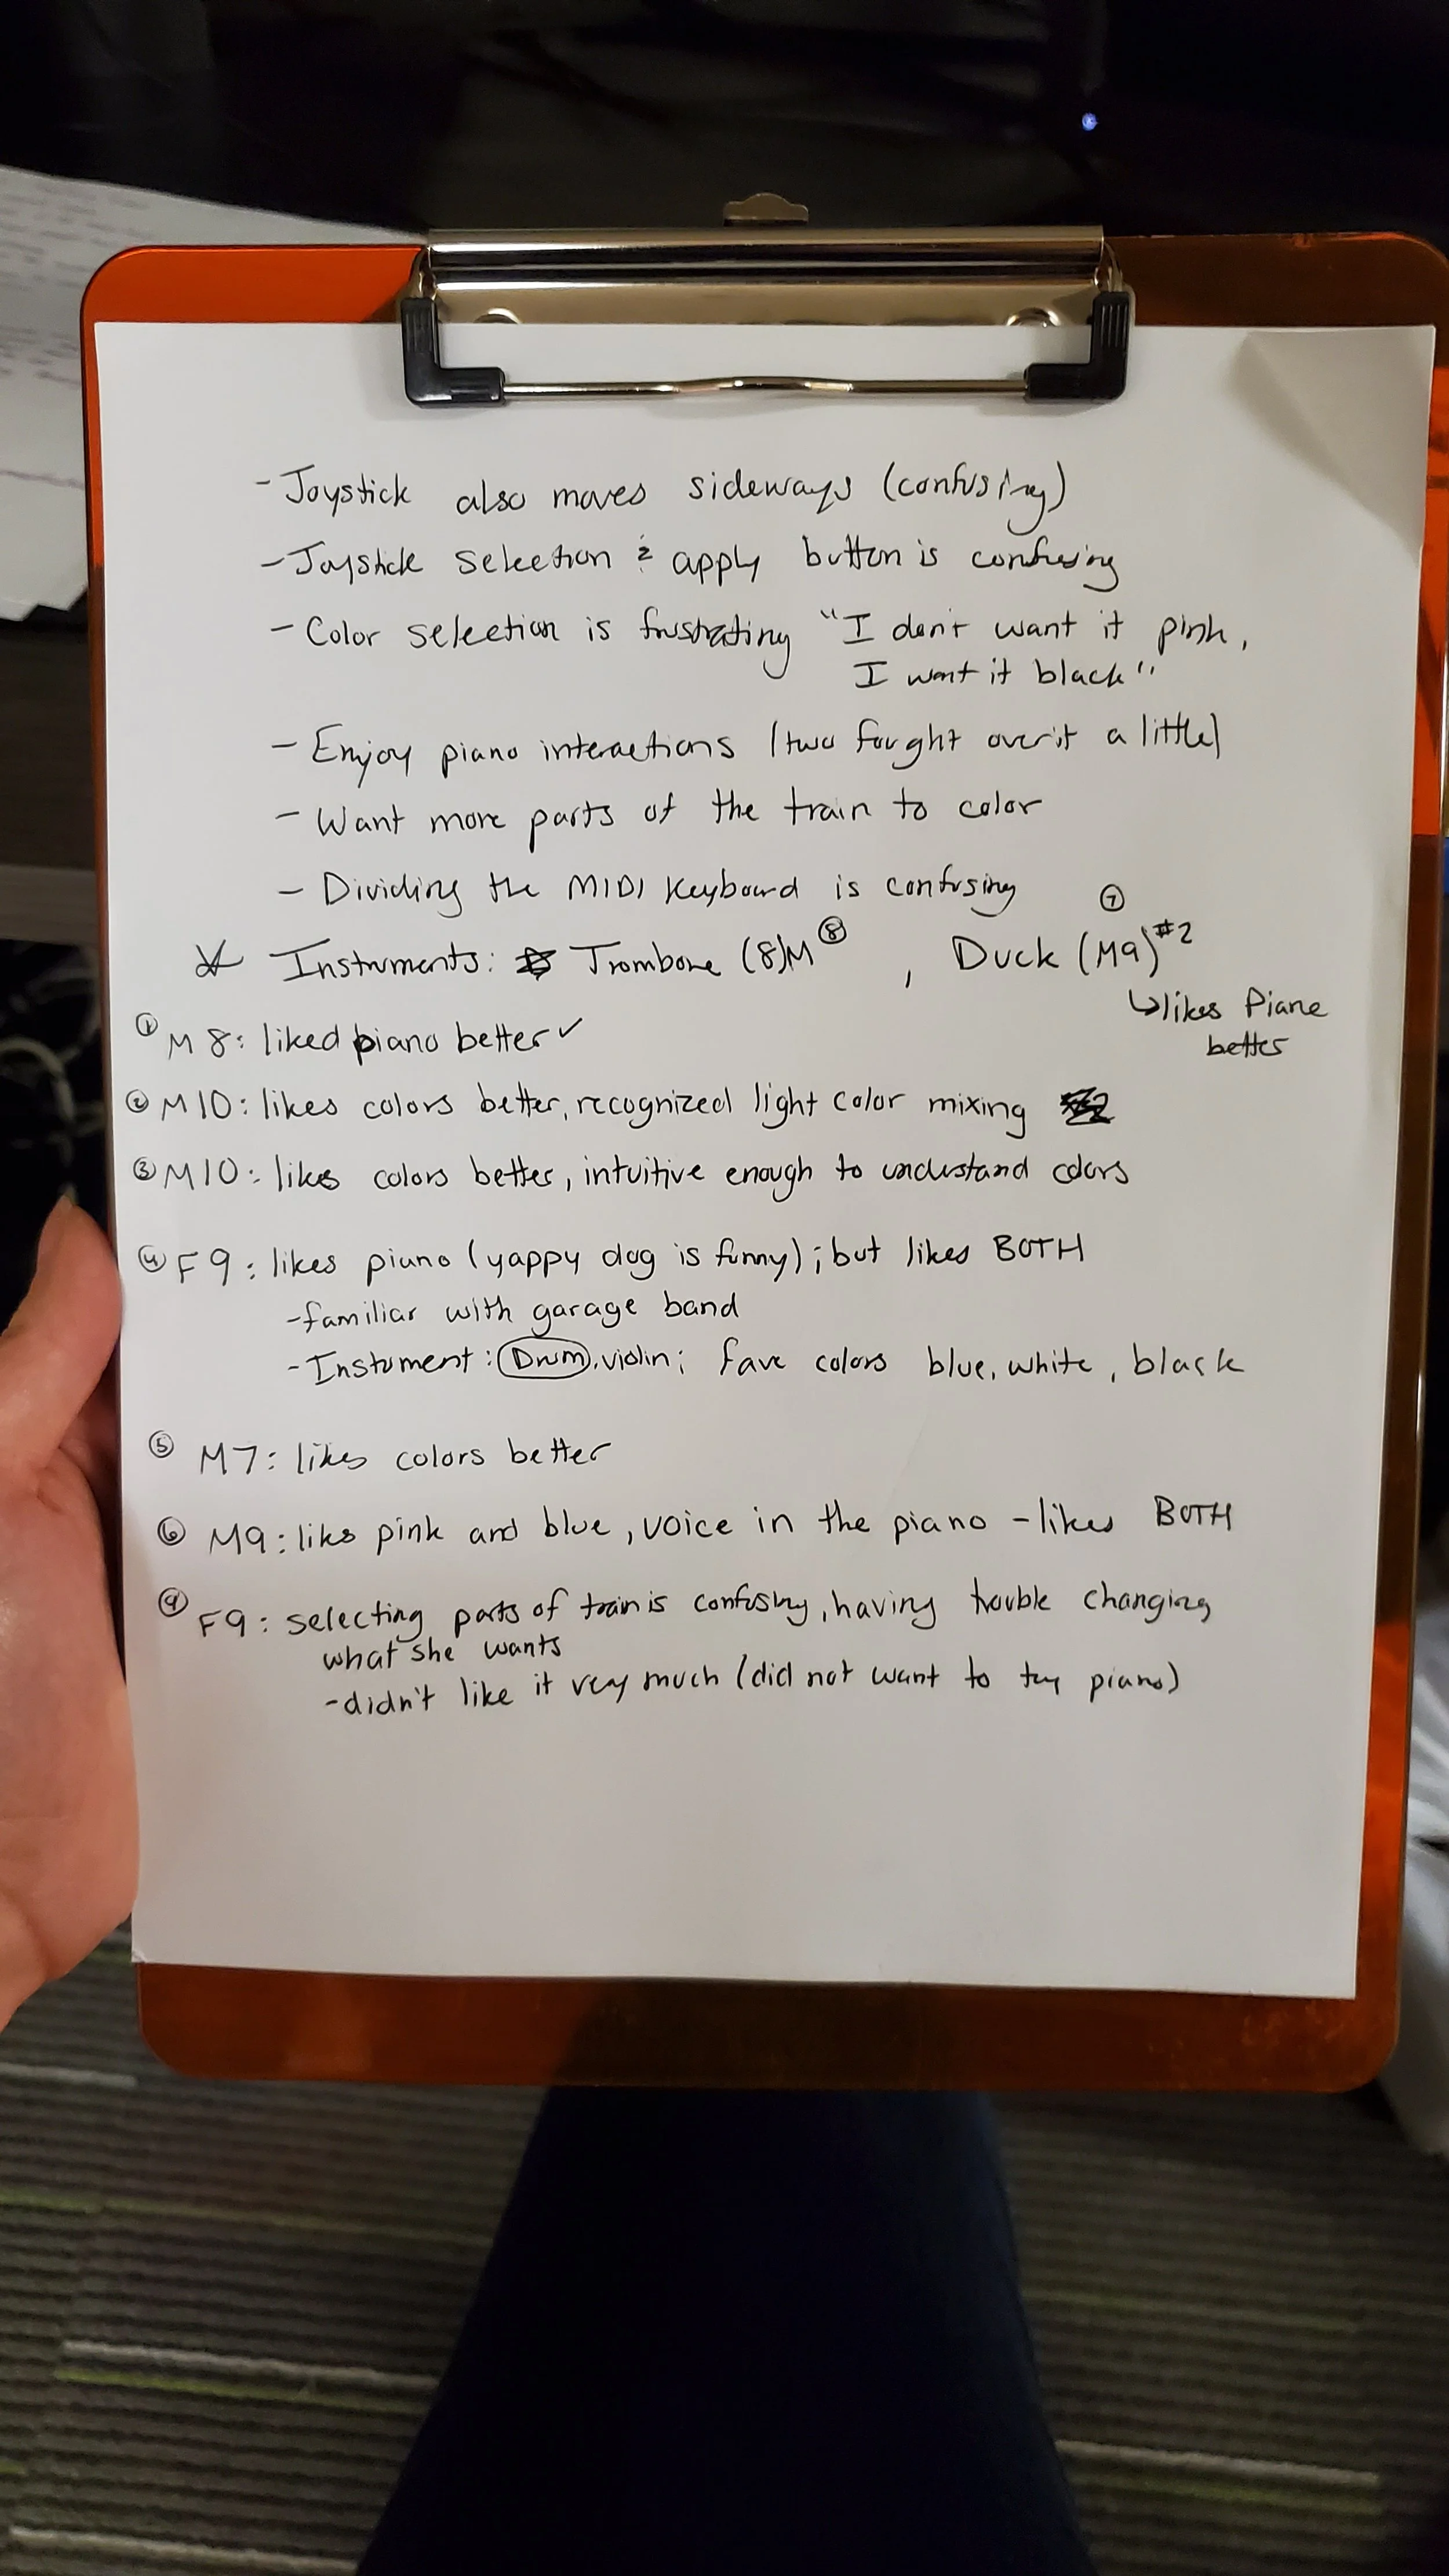 - Joystick also moves sideways (confusing)
- Joystick selection & apply button is confusing
- Color selection is frustrating "I don't want it pink,
I want it black"
- Enjoy piano interactions (two fought over it a little)
- Want more parts of the train to color
- Dividing the MIDI Keyboard is confusing
Instruments: Trombone (8)M ⑧, Duck (M9) #2 ⑦
↳ likes Piano
better
① M8: liked piano better ✓
② M10: likes colors better, recognized light color mixing
③ M10: likes colors better, intuitive enough to understand colors
④ F9: likes piano (yappy dog is funny); but likes BOTH
- familiar with garage band
- Instument: Drum, violin; fave colors blue, white, black
⑤ M7: likes colors better
⑥ M9: likes pink and blue, voice in the piano - likes BOTH
⑨ F9: selecting parts of train is confusing, having trouble changing
what she wants
- didn't like it very much (did not want to try piano)